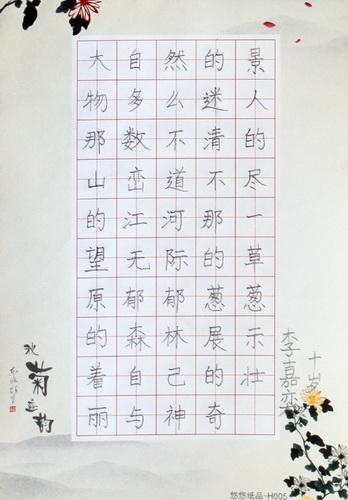 大自然的景
物多么迷人
那数不清的
山峦道不尽
的江河那一
望无际的草
原郁郁葱葱
的森林展示
着自己的壮
丽与神奇
十岁
李嘉
菊
悠悠纸品-H005